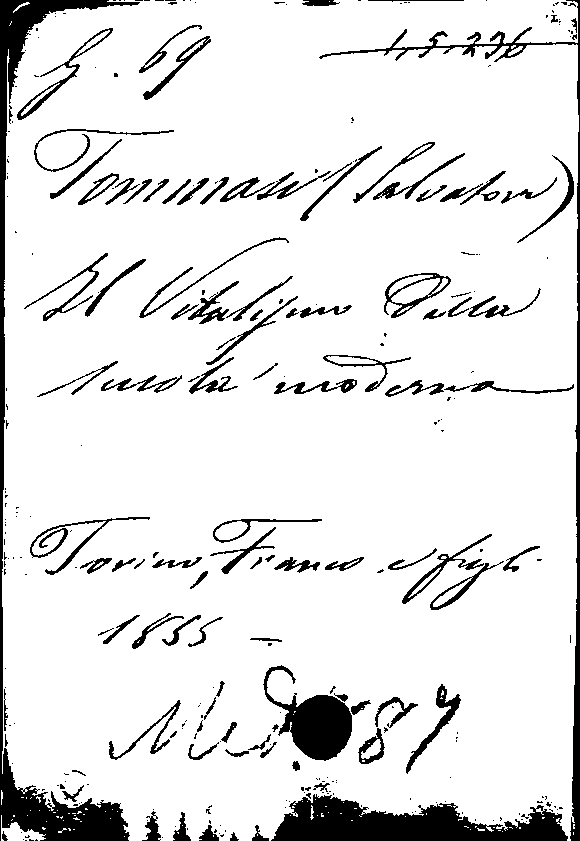 G. 69 1.5.236
Tommasi (Salvatore)
Il Vitalismo della
scuola moderna
Torino, Franco e figli
1855 -
Med 87